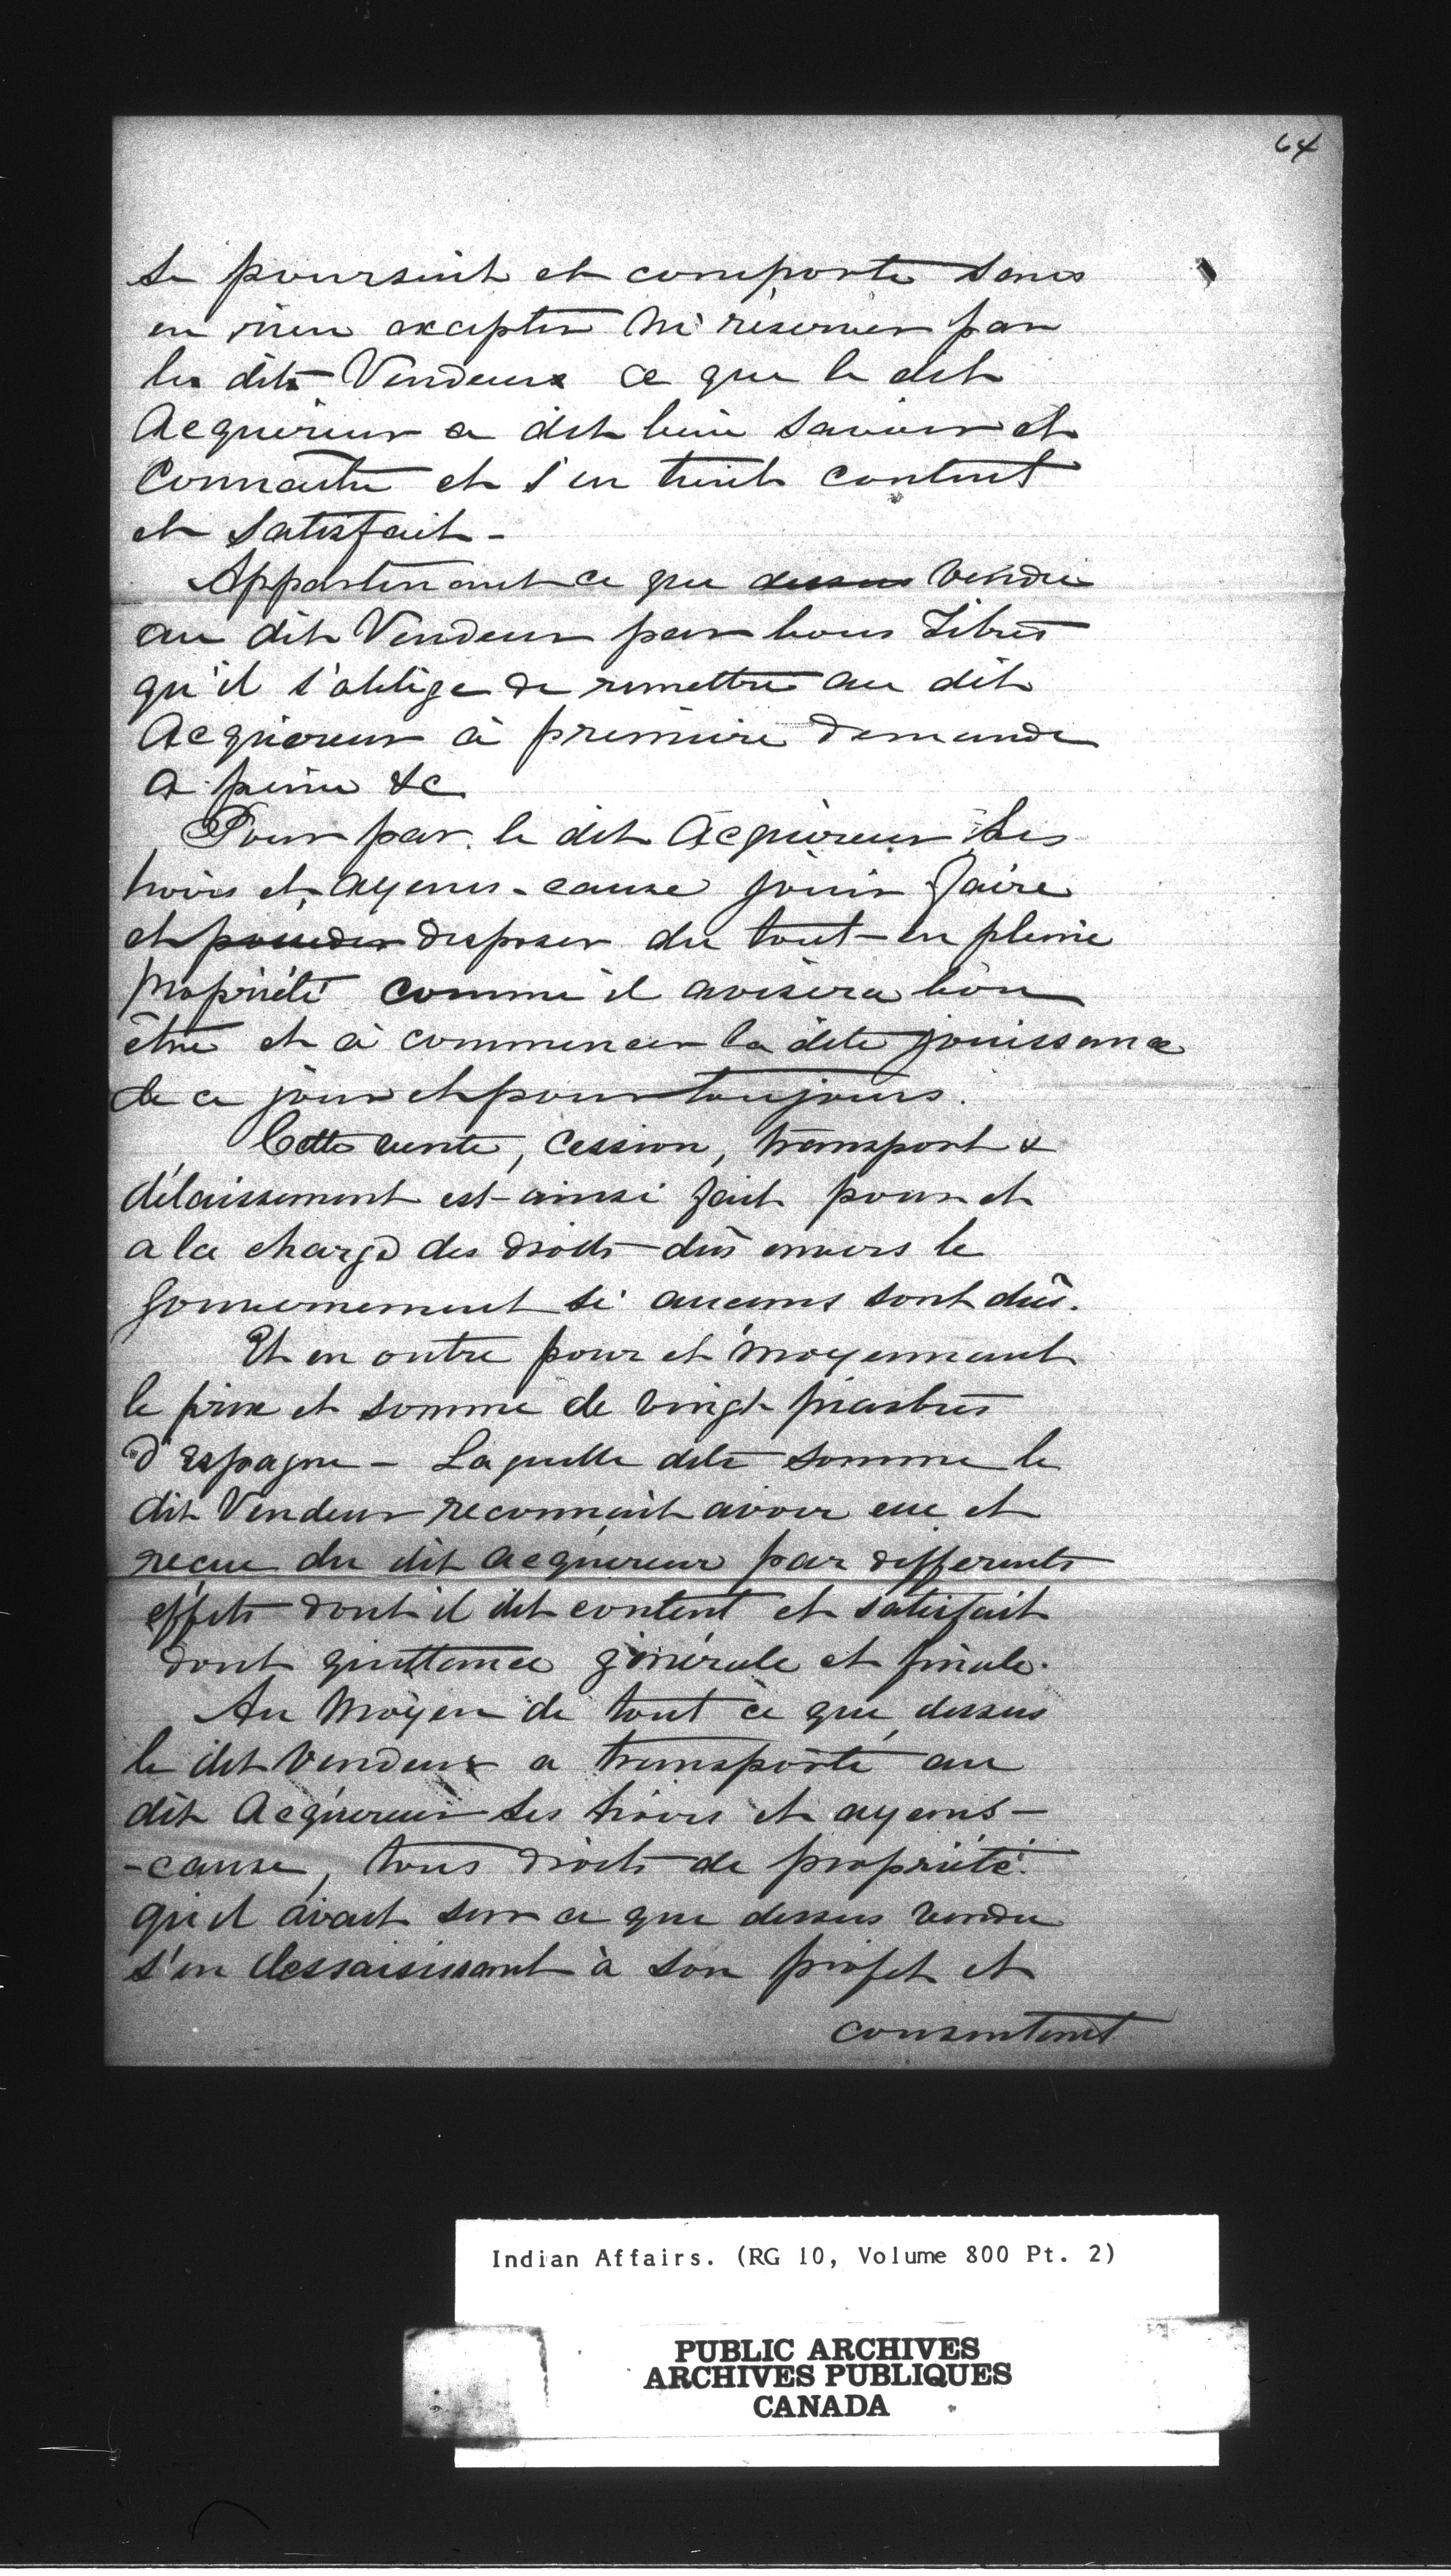 64
se poursuit et comporte sans
en rien excepter ni réserver par
les dits Vendeurs ce que le dit
Acquéreur a dit bien savoir et
Connaitre et s'en tient content
et Satisfait -
Appartenant ce que dessus vendu
au dit Vendeur par bons Titres
qu'il s'oblige de remettre au dit
Acquéreur à première demande
a peine &c
Pour par le dit Acquéreur, Ses
hoirs et ayans-cause jouir faire
et posseder disposer du tout en pleine
propriété comme il avisera bon
être et à commencer la dite jouissance
de ce jour et pour toujours.
Cette vente, Cession, transport &
délaissement est ainsi fait pour et
a la charge des droits dûs envers le
gouvernement si aucuns sont dûs.
Et en outre pour et moyennant
le prix et somme de vingt piastres
d'Espagne - Laquelle dite somme le
dit Vendeur reconnait avoir eue et
recue du dit acquéreur par differents
effets dont il dit content et satisfait
dont quittance générale et finale.
Au moyen de tout ce que dessus
le dit Vendeur a transporté au
dit Acquéreur Ses hoirs et ayans-
-cause, tous droits de propriété
qu'il avait sur ce que dessus vendu
s'en dessaisissant à son profit et
consentant
Indian Affairs. (RG 10, Volume 800 Pt. 2)
PUBLIC ARCHIVES
ARCHIVES PUBLIQUES
CANADA